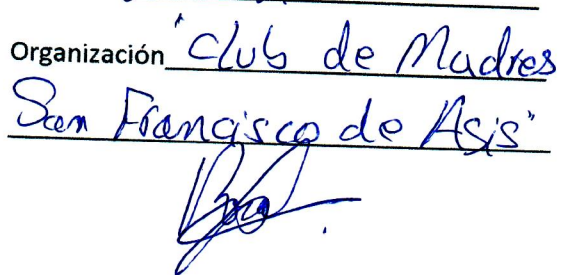 Organización "Club de Madres
San Francisco de Asis"